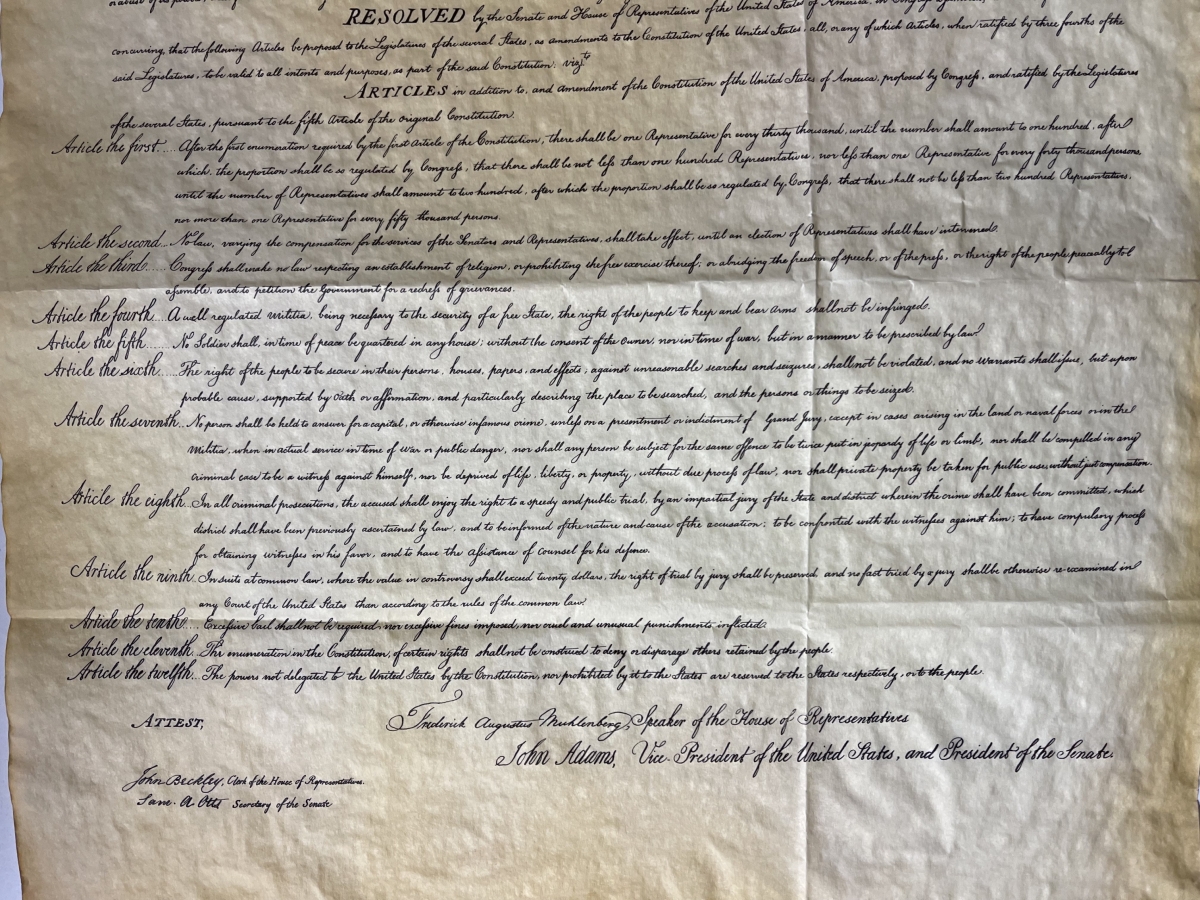 RESOLVED by the Senate and House of Representatives of the United States of America, in Congress
concurring, that the following Articles be proposed to the Legislatures of the several States, as amendments to the Constitution of the United States, all, or any of which Articles, when ratified by three fourths of the
said Legislatures, to be valid to all intents and purposes, as part of the said Constitution: vizt
ARTICLES in addition to, and amendment of the Constitution of the United States of America, proposed by Congress, and ratified by the Legislatures
of the several States, pursuant to the fifth Article of the original Constitution.
Article the first.... After the first enumeration required by the first Article of the Constitution, there shall be one Representative for every thirty thousand, until the number shall amount to one hundred, after
which, the proportion shall be so regulated by Congress, that there shall be not less than one hundred Representatives, nor less than one Representative for every forty thousand persons,
until the number of Representatives shall amount to two hundred, after which the proportion shall be so regulated by Congress, that there shall not be less than two hundred Representatives,
nor more than one Representative for every fifty thousand persons.
Article the second... No law, varying the compensation for the services of the Senators and Representatives, shall take effect, until an election of Representatives shall have intervened.
Article the third..... Congress shall make no law respecting an establishment of religion, or prohibiting the free exercise thereof; or abridging the freedom of speech, or of the press, or the right of the people peaceably to
assemble, and to petition the Government for a redress of grievances.
Article the fourth. A well regulated Militia, being necessary to the security of a free State, the right of the people to keep and bear Arms shall not be infringed.
Article the fifth.... No Soldier shall, in time of peace be quartered in any house; without the consent of the Owner, nor in time of war, but in a manner to be prescribed by law.
Article the sixth..... The right of the people to be secure in their persons, houses, papers, and effects, against unreasonable searches and seizures, shall not be violated, and no Warrants shall issue, but upon
probable cause, supported by Oath or affirmation, and particularly describing the place to be searched, and the persons or things to be seized.
Article the seventh.. No person shall be held to answer for a capital, or otherwise infamous crime, unless on a presentment or indictment of Grand Jury, except in cases arising in the land or naval forces or in the
Militia, when in actual service in time of War or public danger, nor shall any person be subject for the same offence to be twice put in jeopardy of life or limb, nor shall be compelled in any
criminal case to be a witness against himself, nor be deprived of life, liberty, or property, without due process of law, nor shall private property be taken for public use, without just compensation.
Articile the eighth... In all criminal prosecutions, the accused shall enjoy the right to a speedy and public trial, by an impartial jury of the State and district wherein the crime shall have been committed, which
district shall have been previously ascertained by law, and to be informed of the nature and cause of the accusation; to be confronted with the witnesses against him; to have compulory process
for obtaining witnesses in his favor, and to have the Assistance of Counsel for his defence.
Article the ninth.. In suits at common law, where the value in controversy shall exceed twenty dollars, the right of trial by jury shall be preserved, and no fact tried by a jury shall be otherwise re-examined in
any Court of the United States than according to the rules of the common law.
Article the tenth.... Excessive bail shall not be required, nor excessive fines imposed, nor cruel and unusual punishments inflicted.
Article the eleventh. The enumeration in the Constitution, of certain rights shall not be construed to deny or disparage others retained by the people.
Article the twelfth... The powers not delegated to the United States by the Constitution, nor prohibited by it to the States are reserved to the States respectively, or to the people.
ATTEST,
Frederick Augustus Muhlenberg, Speaker of the House of Representatives
John Adams, Vice-President of the United States, and President of the Senate.
John Beckley, Clerk of the House of Representatives.
Sam. A Otis Secretary of the Senate